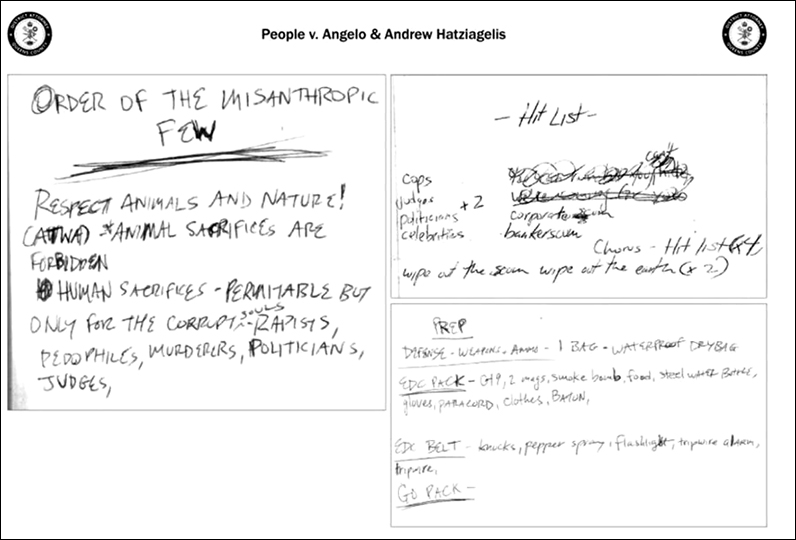 DISTRICT ATTORNEY
QUEENS COUNTY
People v. Angelo & Andrew Hatziagelis
DISTRICT ATTORNEY
QUEENS COUNTY
ORDER OF THE MISANTHROPIC
FEW
RESPECT ANIMALS AND NATURE!
(ATWA) *ANIMAL SACRIFICES ARE
FORBIDDEN
HUMAN SACRIFICES - PERMITABLE BUT
ONLY FOR THE CORRUPT SOULS - RAPISTS,
PEDOPHILES, MURDERERS, POLITICIANS,
JUDGES,
- Hit List -
cops
judges +2
politicians corporate
celebrities bankerscum
Chorus - Hit list (x4)
wipe out the scum wipe out the earth (x2)
PREP
DEFENSE - WEAPONS - AMMO - 1 BAG - WATERPROOF DRYBAG
EDC PACK - G19, 2 mags, smoke bomb, food, steel water bottle,
gloves, PARACORD, clothes, BATON,
EDC BELT - knucks, pepper spray, flashlight, tripwire alarm,
tripwire,
GO PACK -